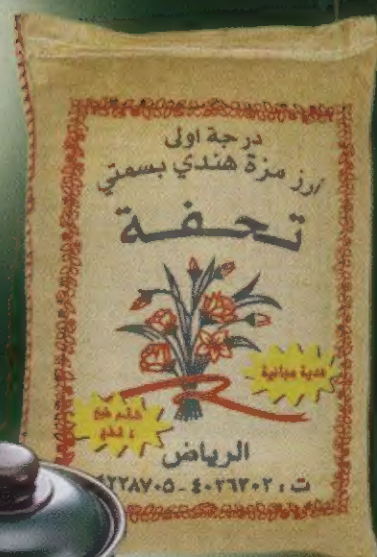 درجة اولى
أرز مزة هندي بسمتي
تحفة
هدية مجانية
طقم طبخ
٤ قطع
الرياض
ت : ٤٠٢٦٣٠٢ - ٤٢٢٨٧٠٥